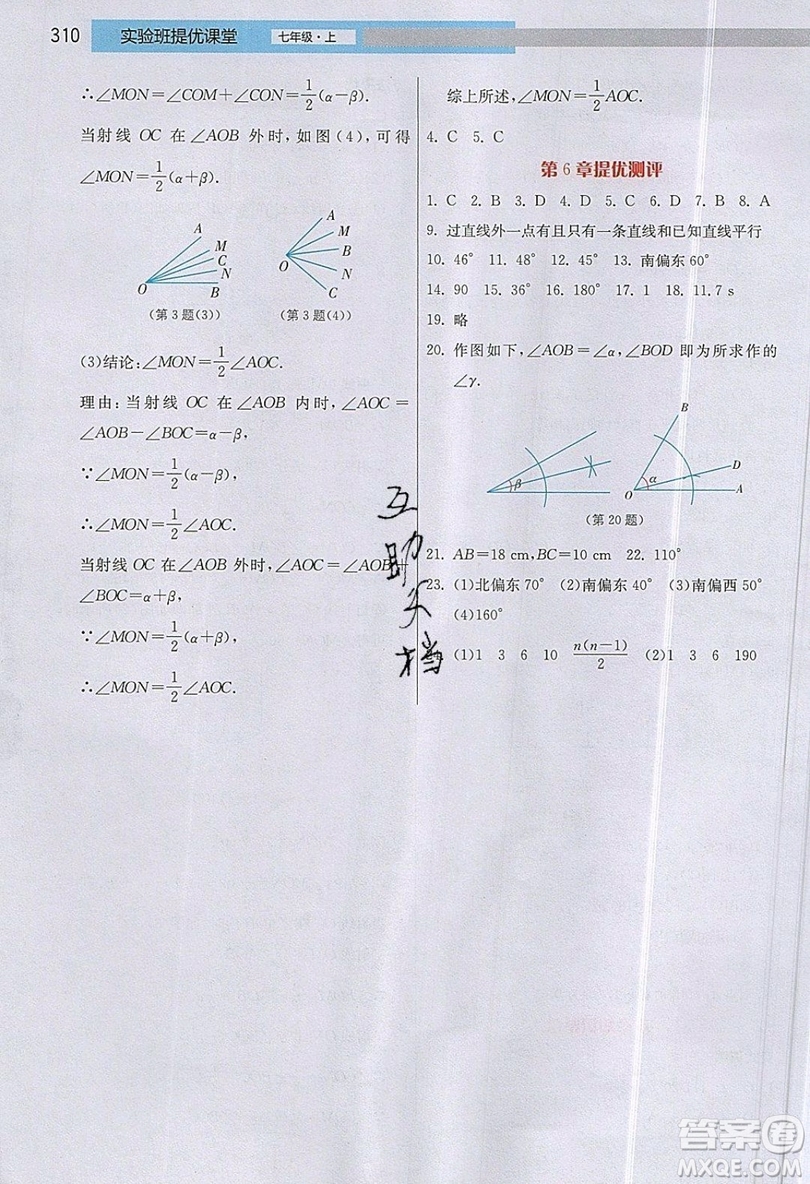 310 实验班提优课堂 七年级·上
∴∠MON=∠COM+∠CON=\frac{1}{2}(α-β).
当射线 OC 在∠AOB 外时,如图(4),可得
∠MON=\frac{1}{2}(α+β).
A
M
C
N
O
B
(第 3 题(3))
A
M
B
O
N
C
(第 3 题(4))
(3)结论:∠MON=\frac{1}{2}∠AOC.
理由:当射线 OC 在∠AOB 内时,∠AOC=
∠AOB-∠BOC=α-β,
∵∠MON=\frac{1}{2}(α-β),
∴∠MON=\frac{1}{2}∠AOC.
当射线 OC 在∠AOB 外时,∠AOC=∠AOB+
∠BOC=α+β,
∵∠MON=\frac{1}{2}(α+β),
∴∠MON=\frac{1}{2}∠AOC.
综上所述,∠MON=\frac{1}{2}AOC.
4. C 5. C
第 6 章提优测评
1. C 2. B 3. D 4. D 5. C 6. D 7. D 8. A
9. 过直线外一点有且只有一条直线和已知直线平行
10. 46° 11. 48° 12. 45° 13. 南偏东 60°
14. 90 15. 28° 16. 180° 17. 1 18. 11.7 s
19. 略
20. 作图如下,∠AOB=∠α,∠BOD 即为所求作的
∠γ.
β
B
D
O
α
A
(第 20 题)
21. AB=18 cm,BC=10 cm 22. 110°
23. (1)北偏东 70° (2)南偏东 40° (3)南偏西 50°
(4)160°
(1)1 3 6 10 \frac{n(n-1)}{2} (2)1 3 6 190
互
助
文
档
答案圈
MXQE.COM